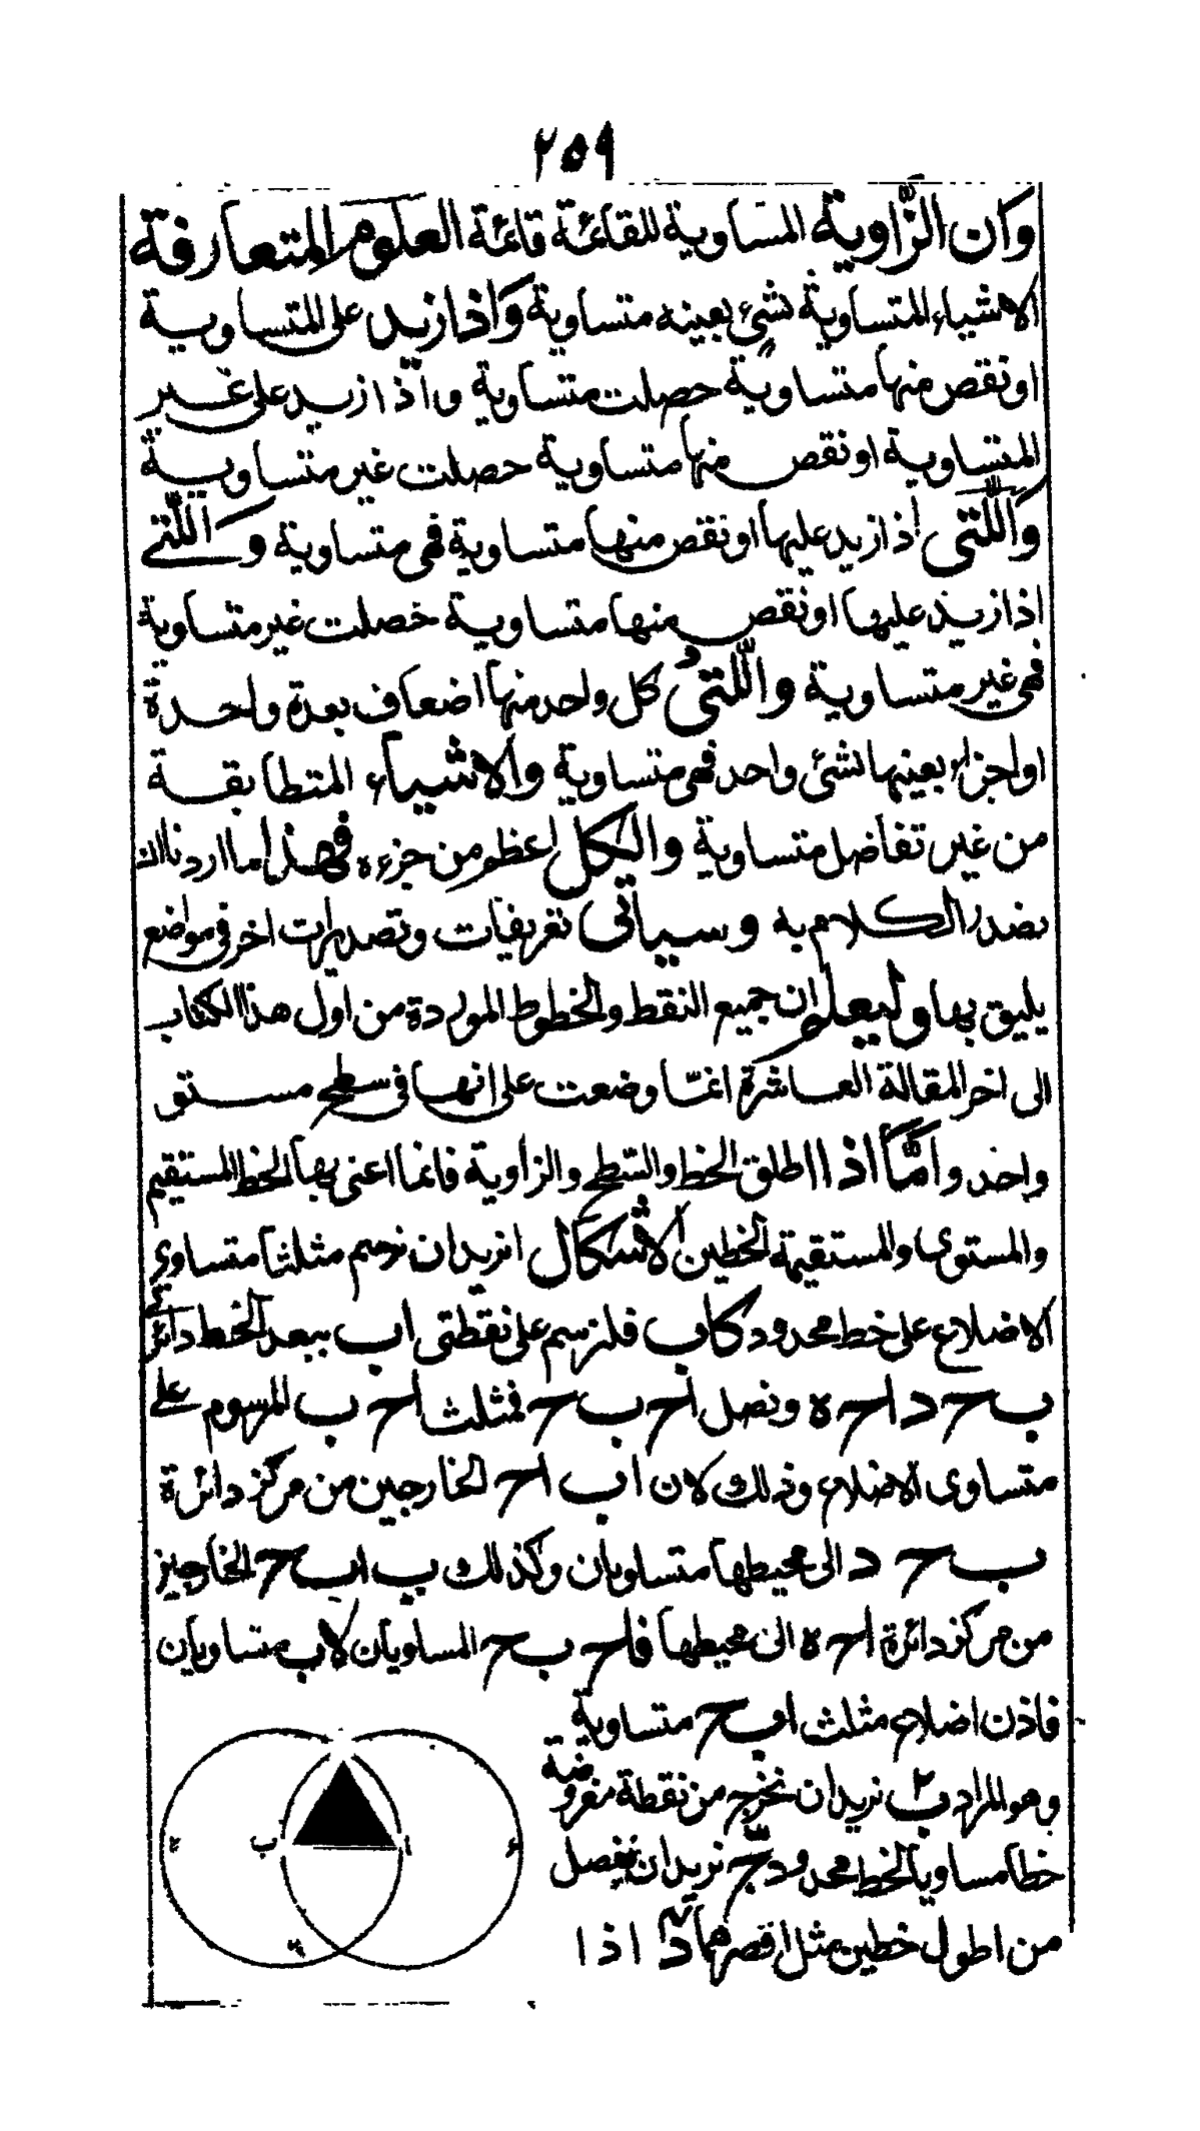 ٢٥٩
وان الزّاوية المساوية للقائمة قائمة العلوم المتعارفة
الاشياء المتساوية لشئ بعينه متساوية واذا زيد على المتساوية
او نقص منها متساوية حصلت متساوية واذا زيد على غير
المتساوية او نقص منها متساوية حصلت غير متساوية
واللّتى اذا زيد عليها او نقص منها متساوية فهى متساوية واللّتى
اذا زيد عليها او نقص منها متساوية حصلت غير متساوية
فهى غير متساوية واللّتى كل واحد منها اضعاف بعدة واحدة
او اجزاء بعينها لشئ واحد فهى متساوية والاشياء المتطابقة
من غير تفاضل متساوية والكل اعظم من جزءه فهذا ما اردنا ان
نصدر الكلام به وسياتى تعريفات وتصديرات اخر فى مواضع
يليق بها وليعلم ان جميع النقط والخطوط الموردة من اول هذا الكتاب
الى اخر المقالة العاشرة انمّا وضعت على انها فى سطح مستو
واحد وامّا اذا اطلق الخط والسّطح والزاوية فانما اعنى بها الخط المستقيم
والمستوى والمستقيمة الخطين الاشكال ا نريد ان نرسم مثلثا متساوى
الاضلاع على خط محدود كاب فلنرسم على نقطتى اب ببعد الخط دائرتى
ب ح د ا ح ه ونصل ا ح ب ح فمثلث ا ح ب المرسوم على
متساوى الاضلاع وذلك لان اب اح الخارجين من مركز دائرة
ب ح د الى محيطها متساويان وكذلك ب ا ب ح الخارجين
من مركز دائرة ا ح ه الى محيطها فاح ب ح المساويان لاب متساويان
فاذن اضلاع مثلث اب ح متساوية
وهو المراد ب نريد ان نخرج من نقطة مفروضة
خطا مساويا لخط محدود ج نريد ان نفصل
من اطول خطين مثل اقصرهما د اذا
ب
ا
ء